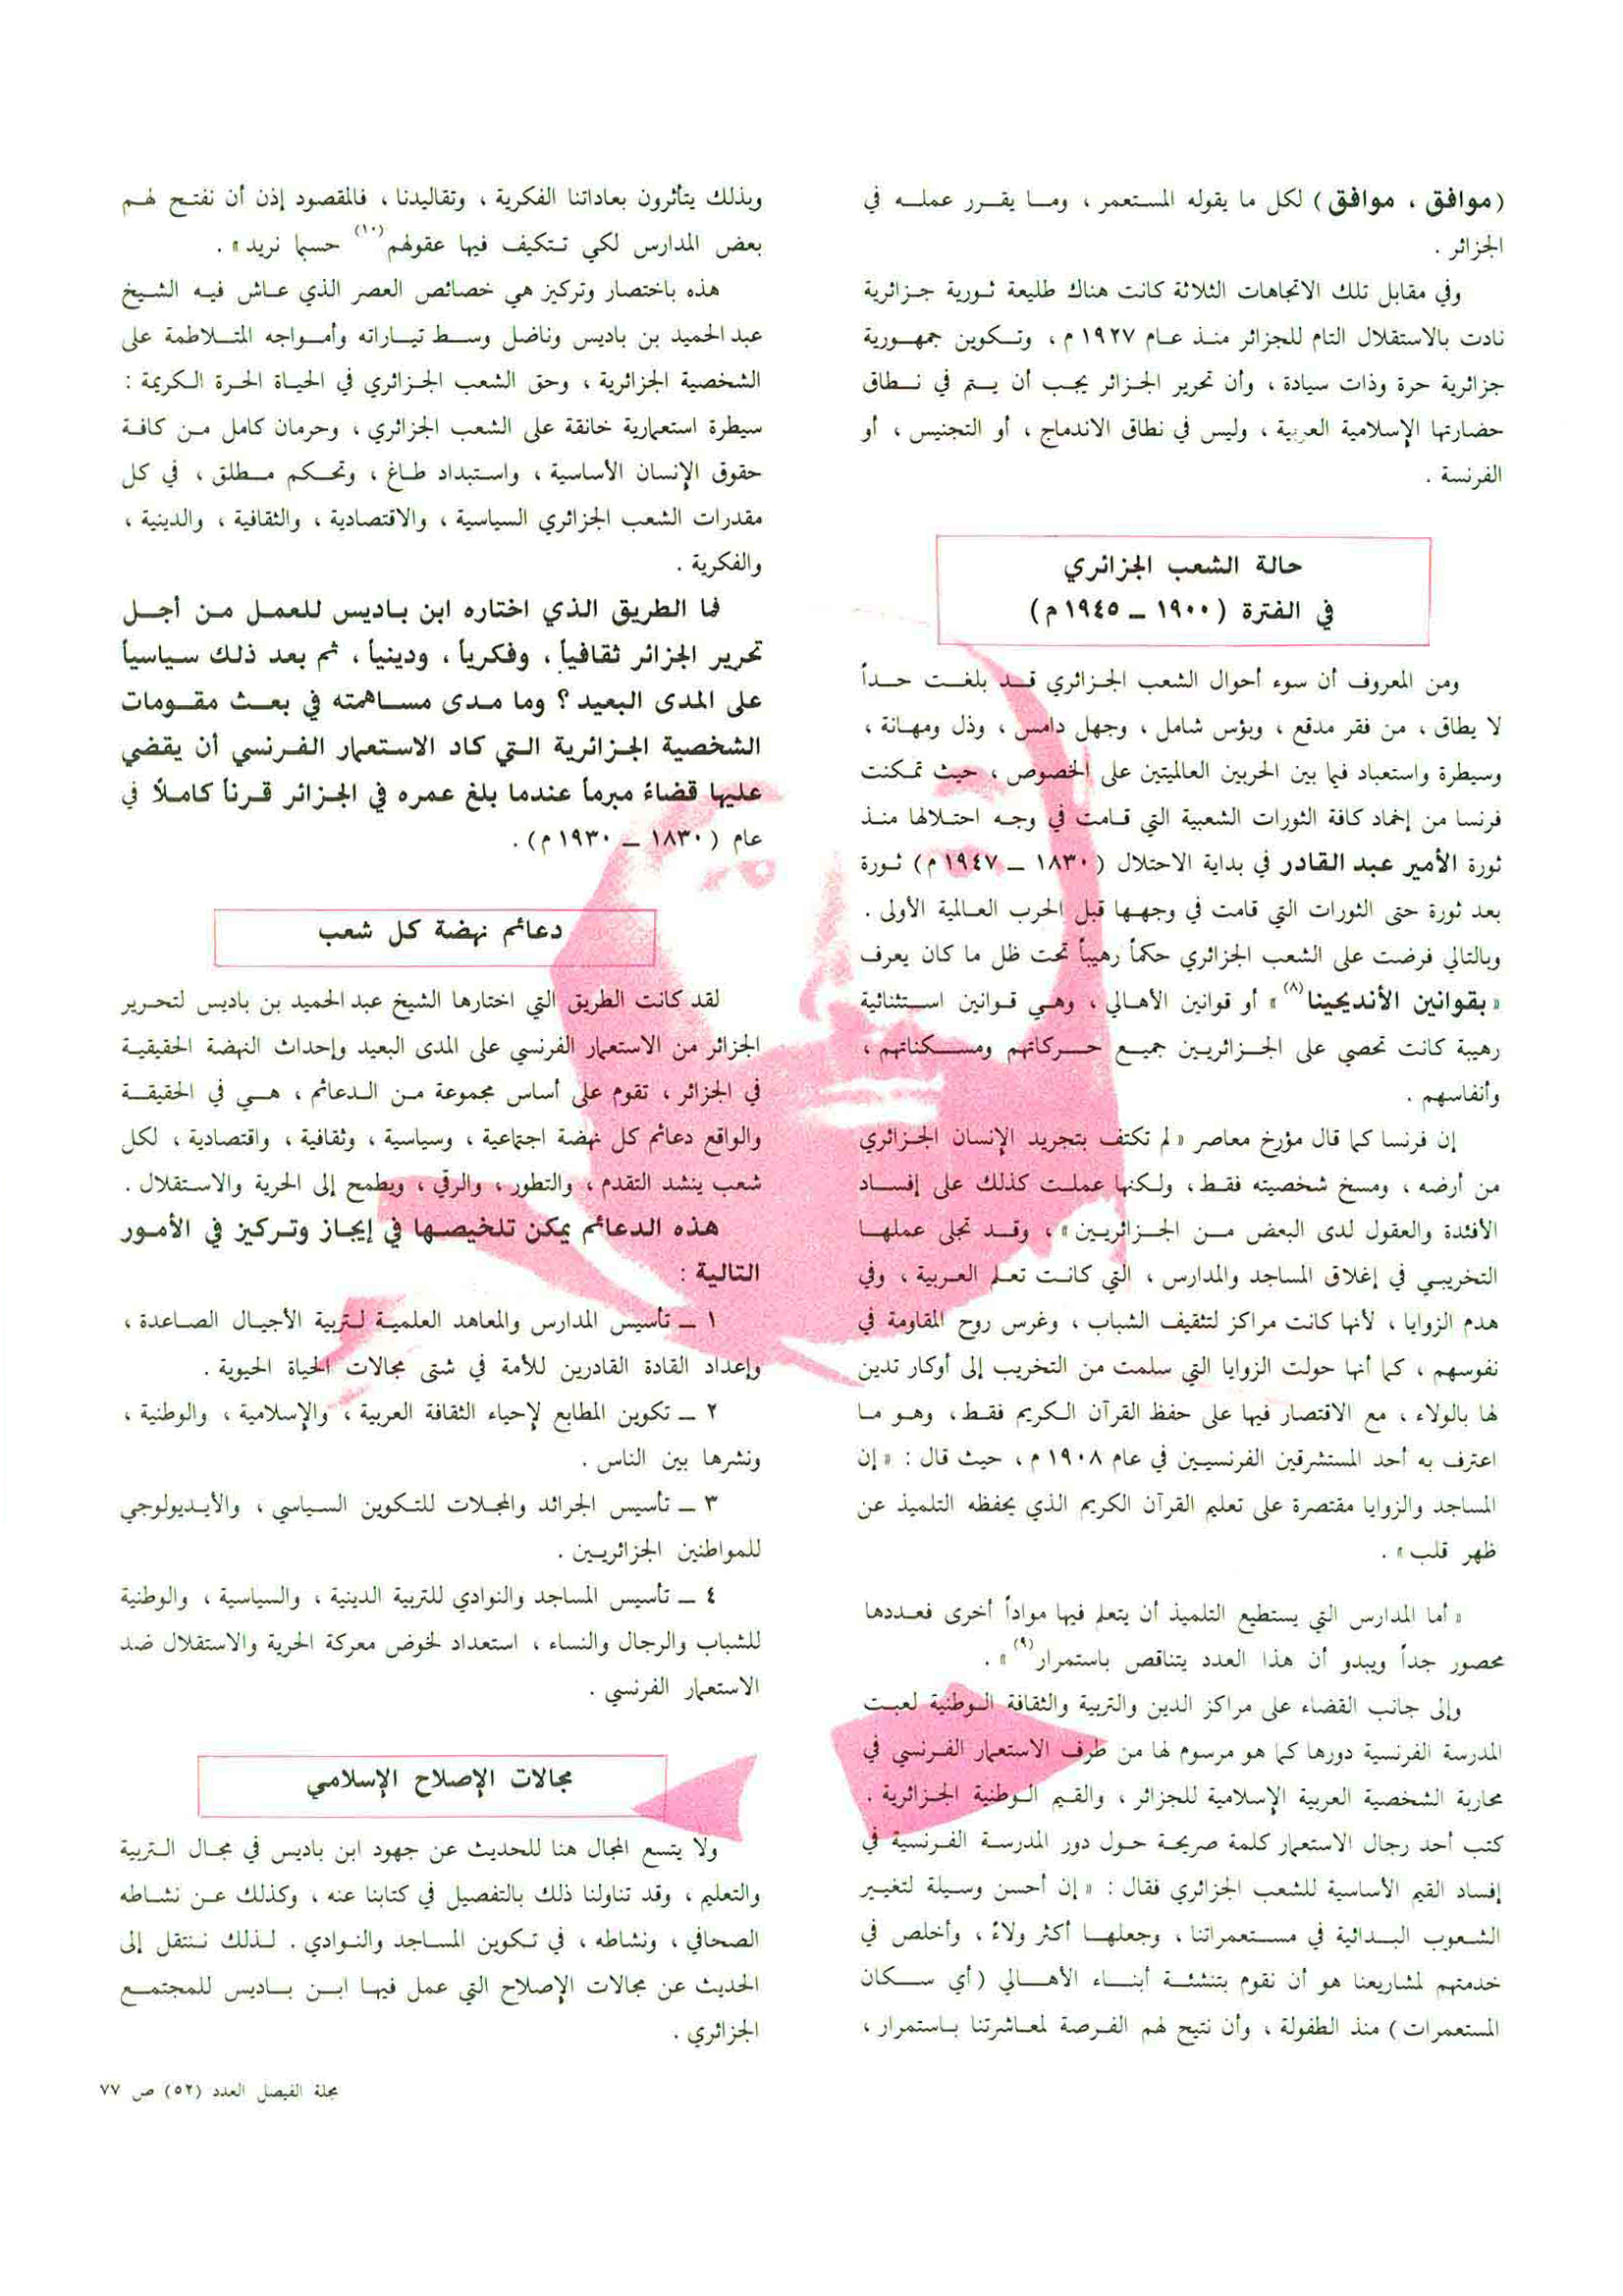 (موافق ، موافق) لكل ما يقوله المستعمر ، وما يقرر عمله في
الجزائر .
وفي مقابل تلك الاتجاهات الثلاثة كانت هناك طليعة ثورية جزائرية
نادت بالاستقلال التام للجزائر منذ عام ١٩٢٧ م ، وتكوين جمهورية
جزائرية حرة وذات سيادة ، وأن تحرير الجزائر يجب أن يتم في نطاق
حضارتها الإسلامية العربية ، وليس في نطاق الاندماج ، أو التجنيس ، أو
الفرنسة .
حالة الشعب الجزائري
في الفترة (١٩٠٠ ــ ١٩٤٥ م)
ومن المعروف أن سوء أحوال الشعب الجزائري قد بلغت حداً
لا يطاق ، من فقر مدقع ، وبؤس شامل ، وجهل دامس ، وذل ومهانة ،
وسيطرة واستعباد فيما بين الحربين العالميتين على الخصوص ، حيث تمكنت
فرنسا من إخماد كافة الثورات الشعبية التي قامت في وجه احتلالها منذ
ثورة الأمير عبد القادر في بداية الاحتلال (١٨٣٠ ــ ١٩٤٧ م) ثورة
بعد ثورة حتى الثورات التي قامت في وجهها قبل الحرب العالمية الأولى .
وبالتالي فرضت على الشعب الجزائري حكماً رهيباً تحت ظل ما كان يعرف
« بقوانين الأنديجينا(٨) » أو قوانين الأهالي ، وهي قوانين استثنائية
رهيبة كانت تحصي على الجزائريين جميع حركاتهم ومسكناتهم ،
وأنفاسهم .
إن فرنسا كما قال مؤرخ معاصر « لم تكتف بتجريد الإنسان الجزائري
من أرضه ، ومسخ شخصيته فقط ، ولكنها عملت كذلك على إفساد
الأفئدة والعقول لدى البعض من الجزائريين » ، وقد تجلى عملها
التخريبي في إغلاق المساجد والمدارس ، التي كانت تعلم العربية ، وفي
هدم الزوايا ، لأنها كانت مراكز لتثقيف الشباب ، وغرس روح المقاومة في
نفوسهم ، كما أنها حولت الزوايا التي سلمت من التخريب إلى أوكار تدين
لها بالولاء ، مع الاقتصار فيها على حفظ القرآن الكريم فقط ، وهو ما
اعترف به أحد المستشرقين الفرنسيين في عام ١٩٠٨ م ، حيث قال : « إن
المساجد والزوايا مقتصرة على تعليم القرآن الكريم الذي يحفظه التلميذ عن
ظهر قلب » .
« أما المدارس التي يستطيع التلميذ أن يتعلم فيها مواداً أخرى فعددها
محصور جداً ويبدو أن هذا العدد يتناقص باستمرار(٩) » .
وإلى جانب القضاء على مراكز الدين والتربية والثقافة الوطنية لعبت
المدرسة الفرنسية دورها كما هو مرسوم لها من طرف الاستعمار الفرنسي في
محاربة الشخصية العربية الإسلامية للجزائر ، والقيم الوطنية الجزائرية .
كتب أحد رجال الاستعمار كلمة صريحة حول دور المدرسة الفرنسية في
إفساد القيم الأساسية للشعب الجزائري فقال : « إن أحسن وسيلة لتغيير
الشعوب البدائية في مستعمراتنا ، وجعلها أكثر ولاءً ، وأخلص في
خدمتهم لمشاريعنا هو أن نقوم بتنشئة أبناء الأهالي (أي سكان
المستعمرات) منذ الطفولة ، وأن نتيح لهم الفرصة لمعاشرتنا باستمرار ،
وبذلك يتأثرون بعاداتنا الفكرية ، وتقاليدنا ، فالمقصود إذن أن نفتح لهم
بعض المدارس لكي تتكيف فيها عقولهم(١٠) حسبما نريد » .
هذه باختصار وتركيز هي خصائص العصر الذي عاش فيه الشيخ
عبد الحميد بن باديس وناضل وسط تياراته وأمواجه المتلاطمة على
الشخصية الجزائرية ، وحق الشعب الجزائري في الحياة الحرة الكريمة :
سيطرة استعمارية خانقة على الشعب الجزائري ، وحرمان كامل من كافة
حقوق الإنسان الأساسية ، واستبداد طاغ ، وتحكم مطلق ، في كل
مقدرات الشعب الجزائري السياسية ، والاقتصادية ، والثقافية ، والدينية ،
والفكرية .
فما الطريق الذي اختاره ابن باديس للعمل من أجل
تحرير الجزائر ثقافياً ، وفكرياً ، ودينياً ، ثم بعد ذلك سياسياً
على المدى البعيد ؟ وما مدى مساهمته في بعث مقومات
الشخصية الجزائرية التي كاد الاستعمار الفرنسي أن يقضي
عليها قضاءً مبرماً عندما بلغ عمره في الجزائر قرناً كاملاً في
عام (١٨٣٠ ــ ١٩٣٠ م) .
دعائم نهضة كل شعب
لقد كانت الطريق التي اختارها الشيخ عبد الحميد بن باديس لتحرير
الجزائر من الاستعمار الفرنسي على المدى البعيد وإحداث النهضة الحقيقية
في الجزائر ، تقوم على أساس مجموعة من الدعائم ، هي في الحقيقة
والواقع دعائم كل نهضة اجتماعية ، وسياسية ، وثقافية ، واقتصادية ، لكل
شعب ينشد التقدم ، والتطور ، والرقي ، ويطمح إلى الحرية والاستقلال .
هذه الدعائم يمكن تلخيصها في إيجاز وتركيز في الأمور
التالية :
١ ــ تأسيس المدارس والمعاهد العلمية لتربية الأجيال الصاعدة ،
وإعداد القادة القادرين للأمة في شتى مجالات الحياة الحيوية .
٢ ــ تكوين المطابع لإحياء الثقافة العربية ، والإسلامية ، والوطنية ،
ونشرها بين الناس .
٣ ــ تأسيس الجرائد والمجلات للتكوين السياسي ، والأيديولوجي
للمواطنين الجزائريين .
٤ ــ تأسيس المساجد والنوادي للتربية الدينية ، والسياسية ، والوطنية
للشباب والرجال والنساء ، استعداد لخوض معركة الحرية والاستقلال ضد
الاستعمار الفرنسي .
مجالات الإصلاح الإسلامي
ولا يتسع المجال هنا للحديث عن جهود ابن باديس في مجال التربية
والتعليم ، وقد تناولنا ذلك بالتفصيل في كتابنا عنه ، وكذلك عن نشاطه
الصحافي ، ونشاطه ، في تكوين المساجد والنوادي . لذلك ننتقل إلى
الحديث عن مجالات الإصلاح التي عمل فيها ابن باديس للمجتمع
الجزائري .
مجلة الفيصل العدد (٥٢) ص ٧٧